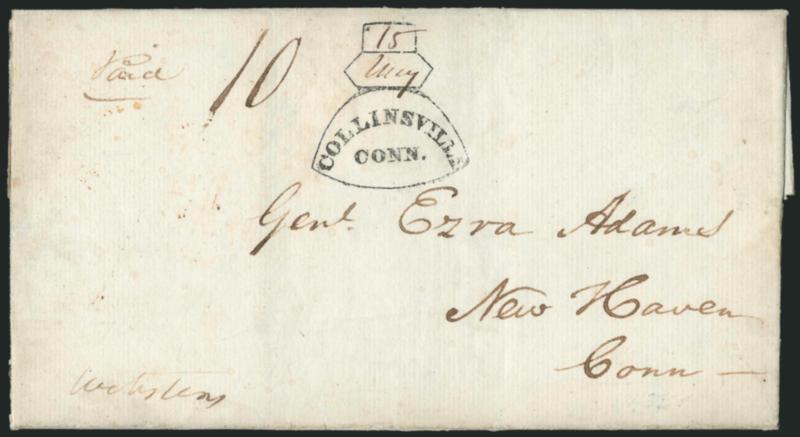 Paid 10
15
May
COLLINSVILLE
CONN.
Genl. Ezra Adams
New Haven
Conn —